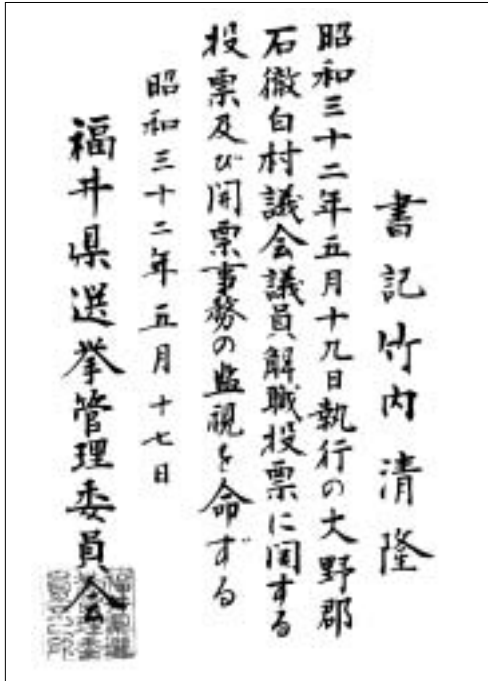 書記 竹内清隆
昭和三十二年五月十九日執行の大野郡
石徹白村議会議員解職投票に関する
投票及び開票事務の監視を命ずる
昭和三十二年五月十七日
福井県選挙管理委員会